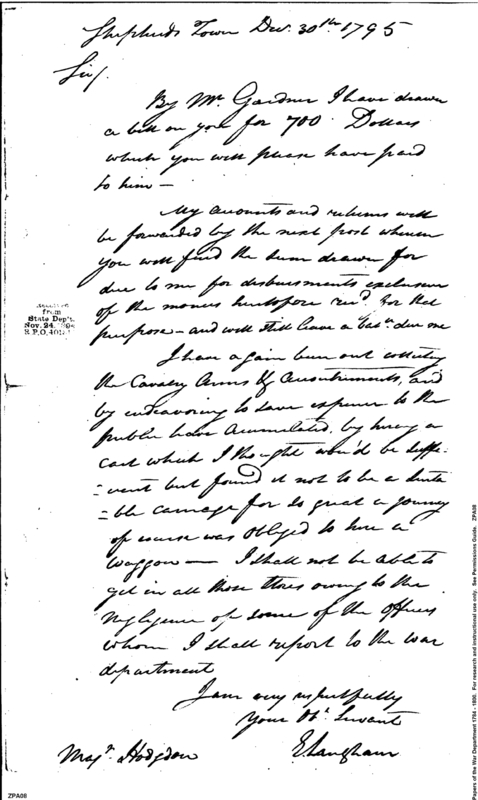 Shepherds Town Dec. 30th 1795
Sir/
By Mr. Gardner I have drawn
a bill on you for 700 Dollars
which you will please have paid
to him —
My accounts and returns will
be forwarded by the next post wherein
you will find the sum drawn for
due to me for disbursements exclusive
of the monies heretofore recd. for that
purpose — and will still leave a bale. due me
I have again been out collecting
the Cavalry Arms & Accoutrements, and
by endeavoring to save expence to the
public have accumulated, by hiring a
cart which I thought wou'd be suffi-
=cient but found it not to be a suita
=ble carriage for so great a journey
of course was obliged to hire a
waggon — I shall not be able to
get in all those stores owing to the
negligence of some of the officers
whom I shall report to the war
department
I am very respectfully
your Obt. Servant
E Langham
Majr. Hodgdon
from
State Dep't.
Nov. 24.
ZPA08
Papers of the War Department 1784 - 1800. For research and instructional use only. See Permissions Guide. ZPA08